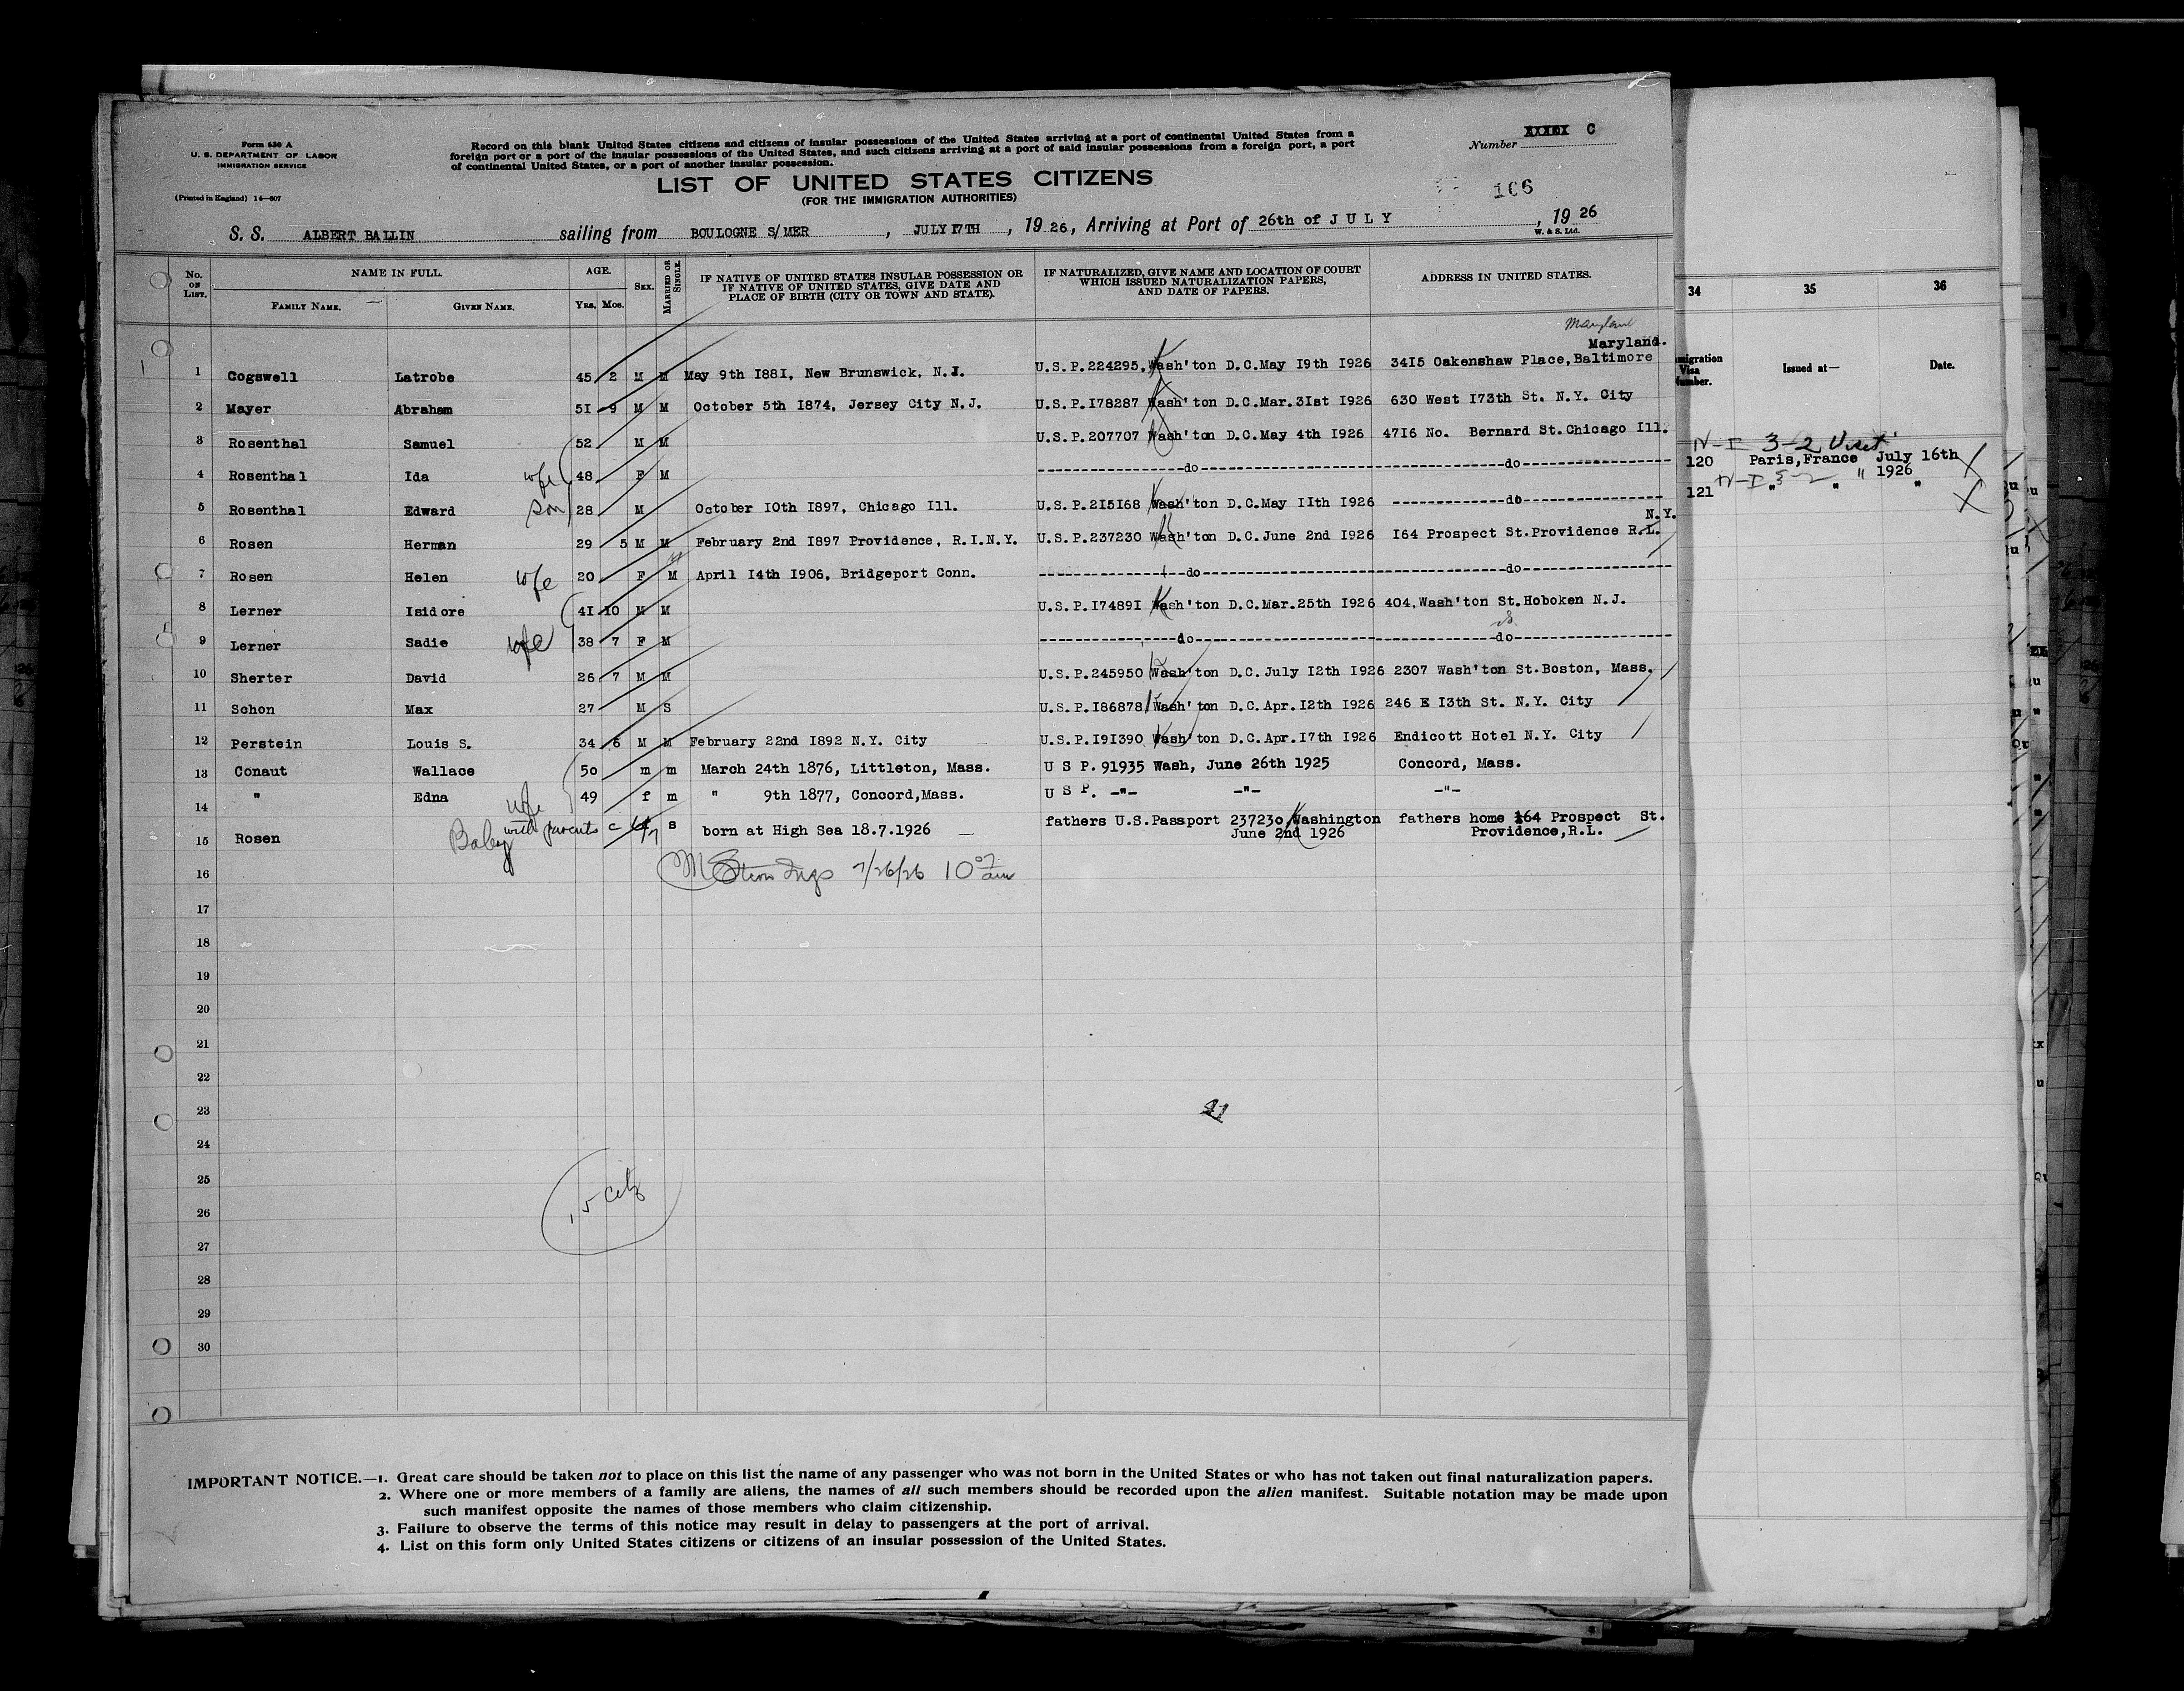 Form 630 A
U. S. DEPARTMENT OF LABOR
IMMIGRATION SERVICE
(Printed in England) 14—807
Record on this blank United States citizens and citizens of insular possessions of the United States arriving at a port of continental United States from a
foreign port or a port of the insular possessions of the United States, and such citizens arriving at a port of said insular possessions from a foreign port, a port
of continental United States, or a port of another insular possession.
Number C
LIST OF UNITED STATES CITIZENS
(FOR THE IMMIGRATION AUTHORITIES)
106
S. S. ALBERT BALLIN sailing from BOULOGNE S/MER, JULY I7TH, 19 26, Arriving at Port of 26th of J U L Y, 19 26
W. & S. Ltd.
No. ON LIST. NAME IN FULL. FAMILY NAME. GIVEN NAME. AGE. YRS. MOS. SEX. MARRIED OR SINGLE. IF NATIVE OF UNITED STATES INSULAR POSSESSION OR IF NATIVE OF UNITED STATES, GIVE DATE AND PLACE OF BIRTH (CITY OR TOWN AND STATE). IF NATURALIZED, GIVE NAME AND LOCATION OF COURT WHICH ISSUED NATURALIZATION PAPERS, AND DATE OF PAPERS. ADDRESS IN UNITED STATES.
34 35 36
Maryland
Maryland.
1 Cogswell Latrobe 45 2 M M May 9th I88I, New Brunswick, N.J. U.S.P.224295,Wash'ton D.C.May I9th I926 34I5 Oakenshaw Place,Baltimore
migration Visa Number. Issued at— Date.
2 Mayer Abraham 5I 9 M M October 5th I874, Jersey City N.J. U.S.P.I78287 Wash'ton D.C.Mar.3Ist I926 630 West I73th St. N.Y. City
3 Rosenthal Samuel 52 M M U.S.P.207707 Wash'ton D.C.May 4th I926 47I6 No. Bernard St.Chicago Ill.
N-I 3-2 Visit
4 Rosenthal Ida wife 48 F M ---do--- ---do---
120 Paris,France July 16th
" 1926
121 N-I 3-2 " " "
5 Rosenthal Edward son 28 M October I0th I897, Chicago Ill. U.S.P.2I5I68 Wash'ton D.C.May IIth I926 ---do---
N.Y.
6 Rosen Herman 29 5 M M February 2nd I897 Providence, R.I.N.Y. U.S.P.237230 Wash'ton D.C.June 2nd I926 I64 Prospect St.Providence R.L.
7 Rosen Helen wife 20 F M April I4th I906, Bridgeport Conn. ---do--- ---do---
8 Lerner Isidore 4I IO M M U.S.P.I7489I Wash'ton D.C.Mar.25th I926 404,Wash'ton St.Hoboken N.J.
9 Lerner Sadie wife 38 7 F M ---do--- ---do---
10 Sherter David 26 7 M M U.S.P.245950 Wash'ton D.C.July I2th I926 2307 Wash'ton St.Boston, Mass.
11 Schon Max 27 M S U.S.P.I86878 Wash'ton D.C.Apr.I2th I926 246 E I3th St. N.Y. City
12 Perstein Louis S. 34 6 M M February 22nd I892 N.Y. City U.S.P.I9I390 Wash'ton D.C.Apr.I7th I926 Endicott Hotel N.Y. City
13 Conaut Wallace 50 m m March 24th 1876, Littleton, Mass. U S P. 91935 Wash, June 26th 1925 Concord, Mass.
14 " Edna wife 49 f m " 9th 1877, Concord,Mass. U S P. -"- -"- -"-
15 Rosen Baby with parents s born at High Sea 18.7.1926 fathers U.S.Passport 23723o,Washington fathers home 164 Prospect St.
June 2nd 1926 Providence,R.L.
16 7/26/26 10 am
17
18
19
20
21
22
23
24
25
26
27
28
29
30
15 Citz
IMPORTANT NOTICE.—1. Great care should be taken not to place on this list the name of any passenger who was not born in the United States or who has not taken out final naturalization papers.
2. Where one or more members of a family are aliens, the names of all such members should be recorded upon the alien manifest. Suitable notation may be made upon
such manifest opposite the names of those members who claim citizenship.
3. Failure to observe the terms of this notice may result in delay to passengers at the port of arrival.
4. List on this form only United States citizens or citizens of an insular possession of the United States.